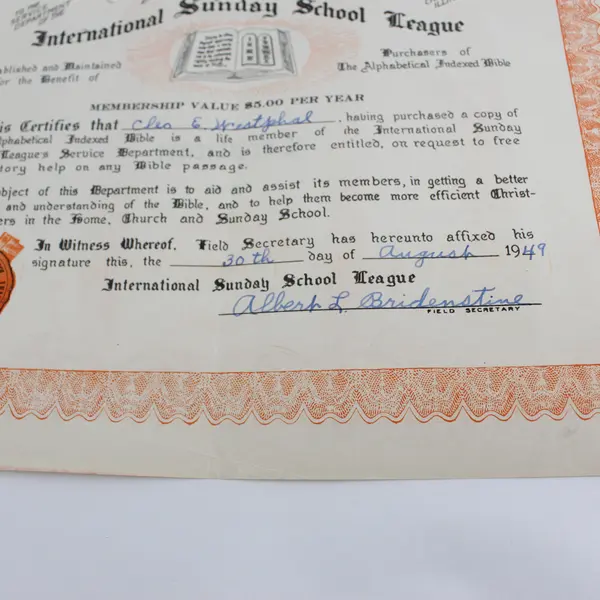 TO THE
SERVICE
DEPARTMENT
OF THE
International Sunday School League
ablished and Maintained
or the Benefit of
Purchasers of
The Alphabetical Indexed Bible
MEMBERSHIP VALUE $5.00 PER YEAR
is Certifies that Cleo E. Westphal, having purchased a copy of
lphabetical Indexed Bible is a life member of the International Sunday
League's Service Department, and is therefore entitled, on request to free
tory help on any Bible passage.
bject of this Department is to aid and assist its members, in getting a better
and understanding of the Bible, and to help them become more efficient Christ-
ers in the Home, Church and Sunday School.
In Witness Whereof, Field Secretary has hereunto affixed his
signature this, the 30th day of August 1949
International Sunday School League
Albert L. Bridenstine
FIELD SECRETARY